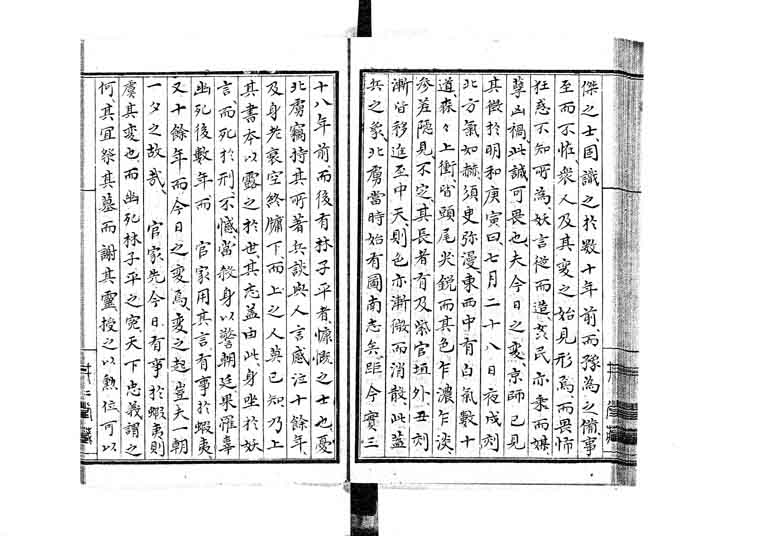 傑之士、固識之於數十年前而豫為之備、事
至而不怪、衆人及其變之始見形焉、而畏怖
狂惑不知所為、妖言從而造、莠民亦乘而媒
孽凶禍、此誠可畏也、夫今日之變、京師已見
其徵於明和庚寅曰、七月二十八日夜、戌刻
北方氣如赫、須臾弥漫東西、中有白氣數十
道、森々上衝、皆頭尾尖銳、而其色乍濃乍淡
參差隠見不定、其長者有及紫宮垣外、丑刻
漸皆移進至中天、則色亦漸微而消散、此蓋
兵之象、北虜當時始有圖南志矣、距今實三
十八年前、而後有林子平者、慷慨之士也、憂
北虜窺、持其所著兵談與人言、感泣十餘年、
及身老衰、空終牖下、而上之人莫已知、乃上
其書、本以露之於世、其志蓋由此、身坐於妖
言、而死於刑、不憾、當殺身以警朝廷、果罹辜
幽死、後數年而　官家用其言有事於蝦夷、
又十餘年而今日之變焉、變之起豈夫一朝
一夕之故哉、　官家先今日有事於蝦夷、則
虞其變也、而幽死林子平之寃、天下忠義謂之
何、其宜祭其墓而謝其靈、授之以勲位、可以